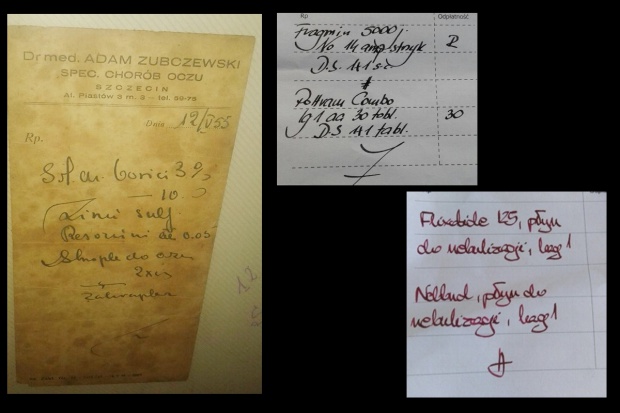 Dr med. ADAM ZUBCZEWSKI
SPEC. CHORÓB OCZU
SZCZECIN
Al. Piastów 3 m. 2 - tel. 50-75
Dnia 12/V 55
Rp.
Sol. ac. borici 3%
10.
Zinci sulf.
Resorcini aa 0.05
do oczu
2 x
Zakraplać
Rp Odpłatność
Fragmin 5000 j.
No 14 amp strzyk R
D.S. 1x1 s.c.
Poltram Combo
lg 1 aa 30 tabl. 30
D.S. 1x1 tabl.
Flixotide 125, płyn
do nebulizacji, lag 1
Nebbud, płyn do
nebulizacji, lag 1